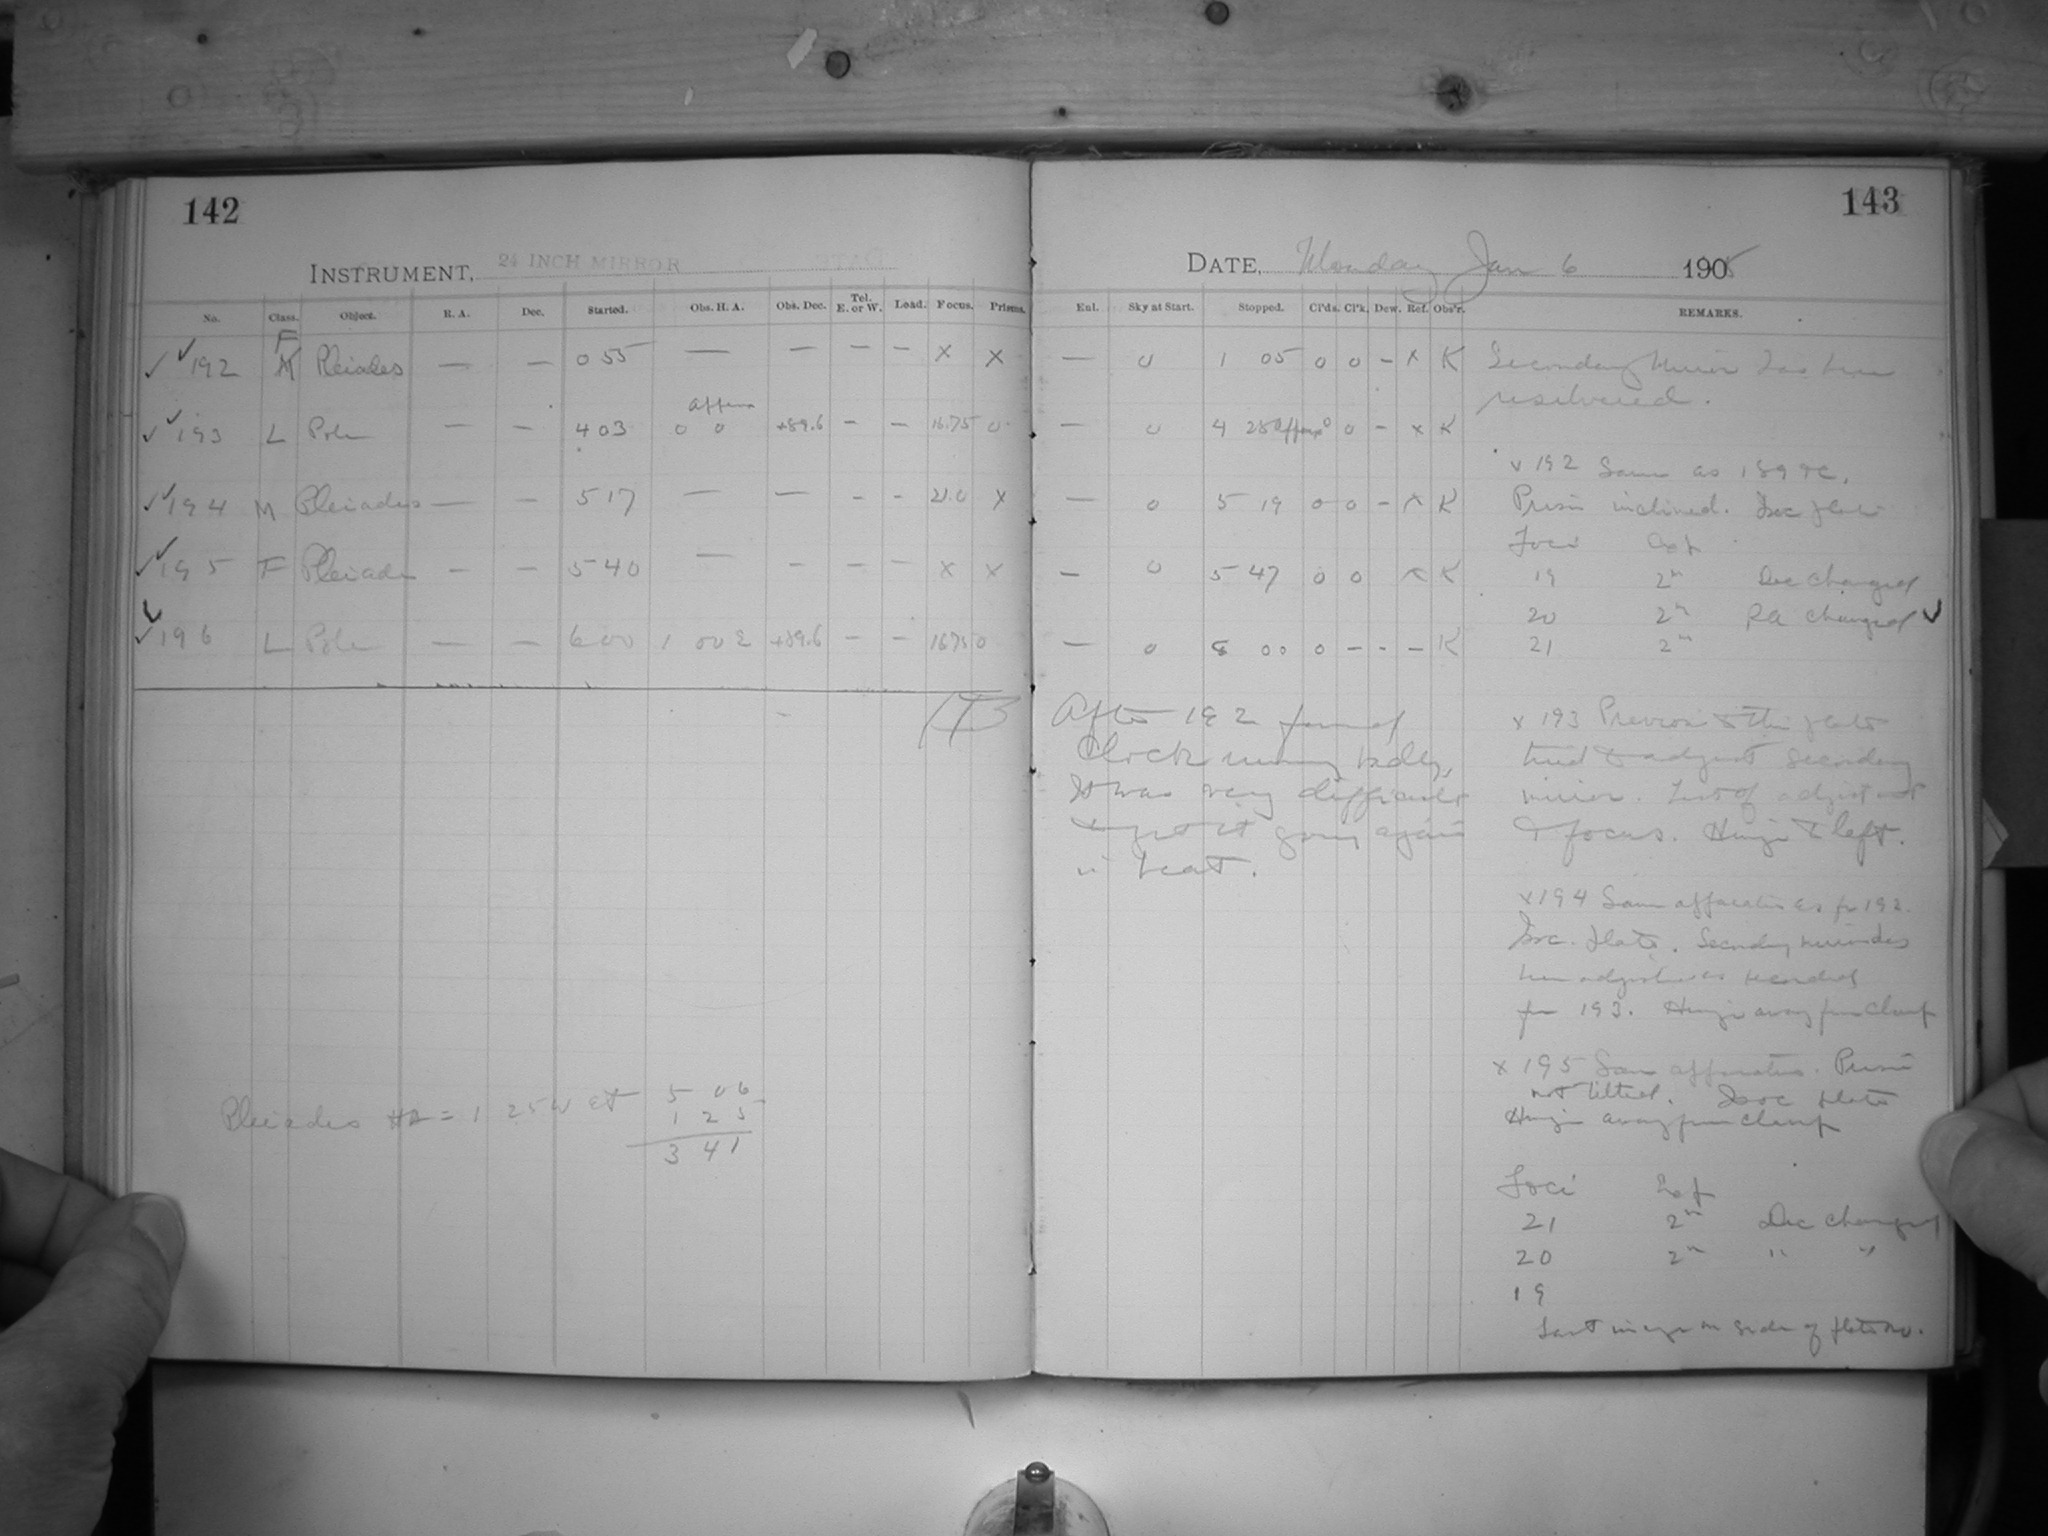 142
INSTRUMENT, 24 INCH MIRROR
No. Class. Object. R. A. Dec. Started. Obs. H. A. Obs. Dec. Tel. E. or W. Load. Focus. Prisms.
F
192 M Pleiades — — 0 55 — — — — X X
approx
193 L Pole — — 4 03 0 0 +89.6 — — 16.75 0
194 M Pleiades — — 5 17 — — - - 21.0 X
195 F Pleiades — — 5 40 — — — — X X
196 L Pole — — 6 00 1 00 E +89.6 — — 16.75 0
Pleiades HA = 1 25 W at 5 06
1 25
3 41
143
DATE, Monday Jan 6 1905
Enl. Sky at Start. Stopped. Cl'ds. Cl'k. Dew. Ref. Obs'r. REMARKS.
— 0 1 05 0 0 - x K Secondary Mirror has been
resilvered.
— 0 4 28 approx 0 0 - x K
v 192 Same as 189 &c.
— 0 5 19 0 0 - x K Prism inclined. Isoc plate
Foci Exp
— 0 5 47 0 0 x K 19 2m Dec changed
20 2m RA changed
— 0 8 00 0 - - - K 21 2m
After 192 found
Clock running badly.
It was very difficult
to get it going again
in beat.
x 193 Previous to this plate
tried to adjust secondary
mirror. Test of adjustment
& focus. Hinge to left.
x 194 Same apparatus as for 192.
Isoc. plate. Secondary mirror has
been adjusted as recorded
for 193. Hinge away from Clamp
x 195 Same apparatus. Prism
not tilted. Isoc plate
Hinge away from Clamp
Foci Exp
21 2m Dec changed
20 2m " "
19
Last image on side of plate no.